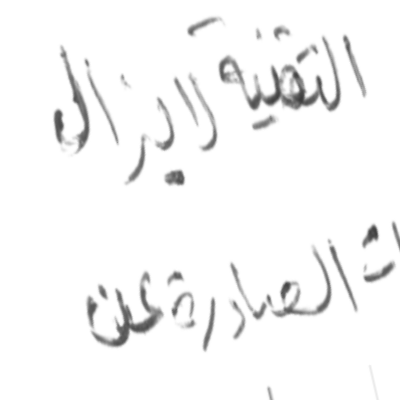 التقنية لا يزال
ات الصادرة عن